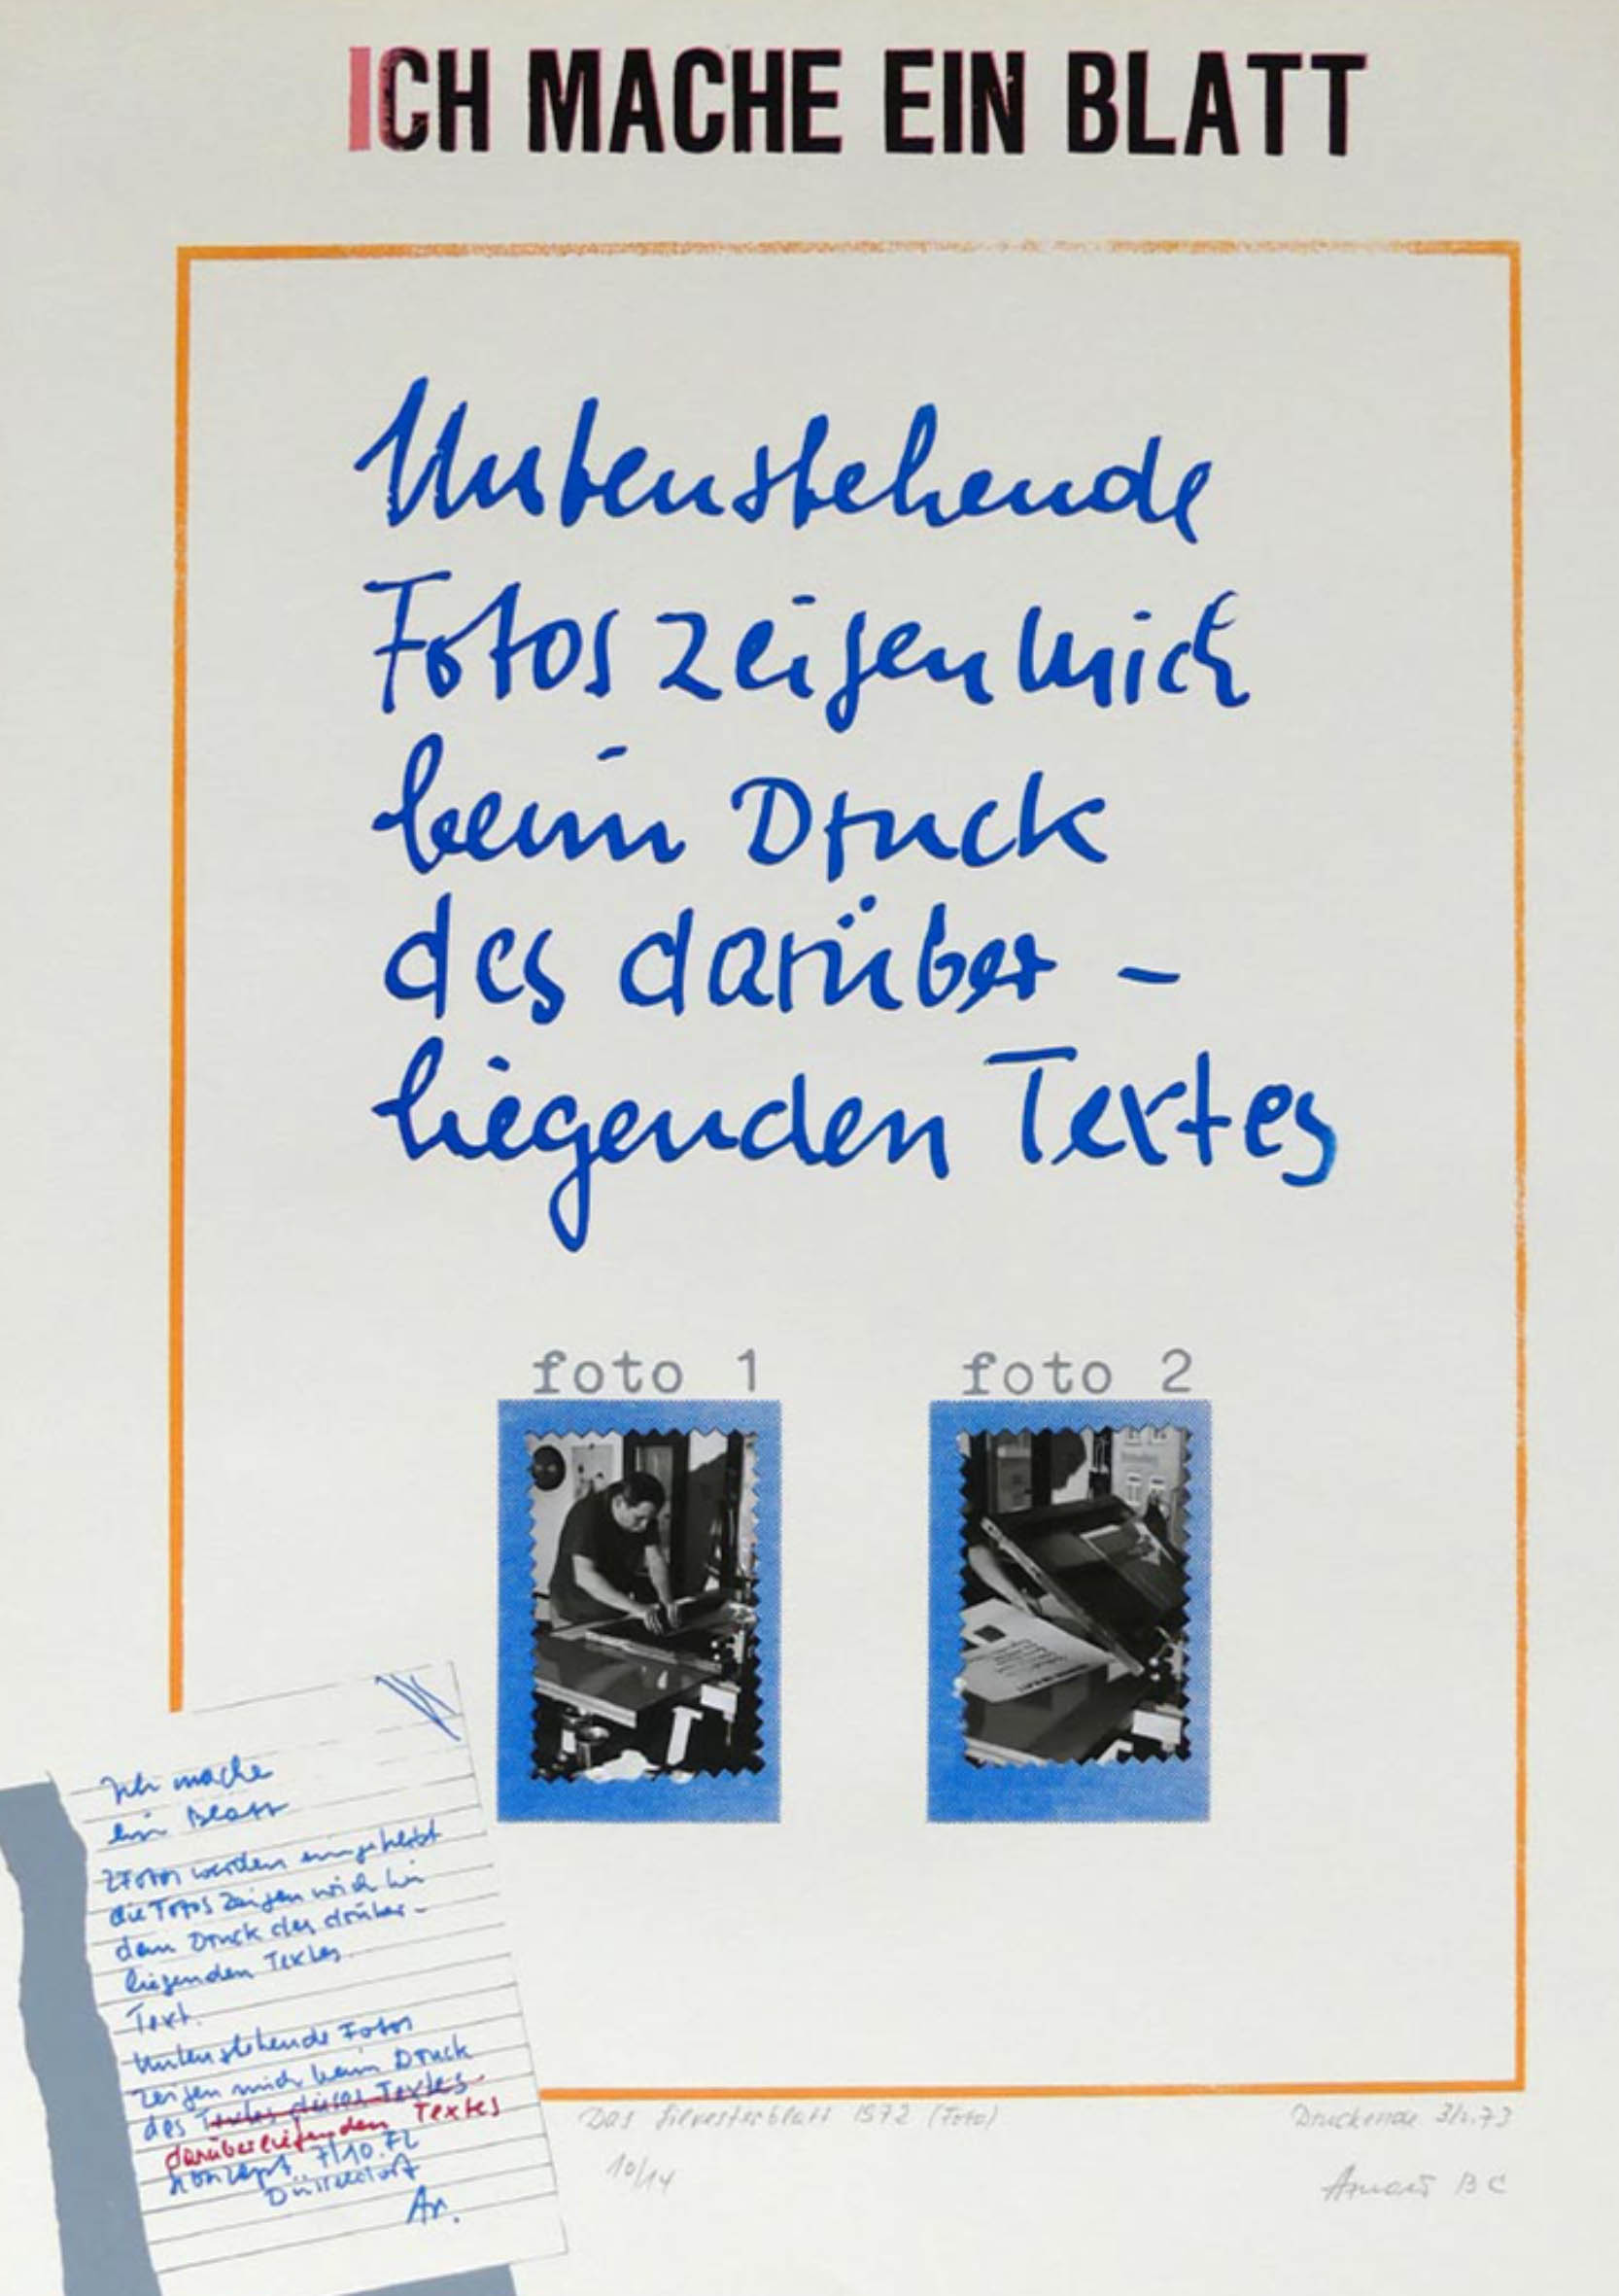 ICH MACHE EIN BLATT
Untenstehende
Fotos zeigen mich
beim Druck
des darüber -
liegenden Textes
foto 1
foto 2
Ich mache
ein Blatt
2 Fotos werden eingeklebt
die Fotos zeigen mich bei
dem Druck des drüber-
liegenden Textes.
Text.
Untenstehende Fotos
zeigen mich beim Druck
des Textes dieses Textes
darüberliegenden Textes
Konzept 7/10.72
Düsseldorf
Ar.
Das Silvesterblatt 1972 (Foto)
10/14
Druckende 3/1.73
BC